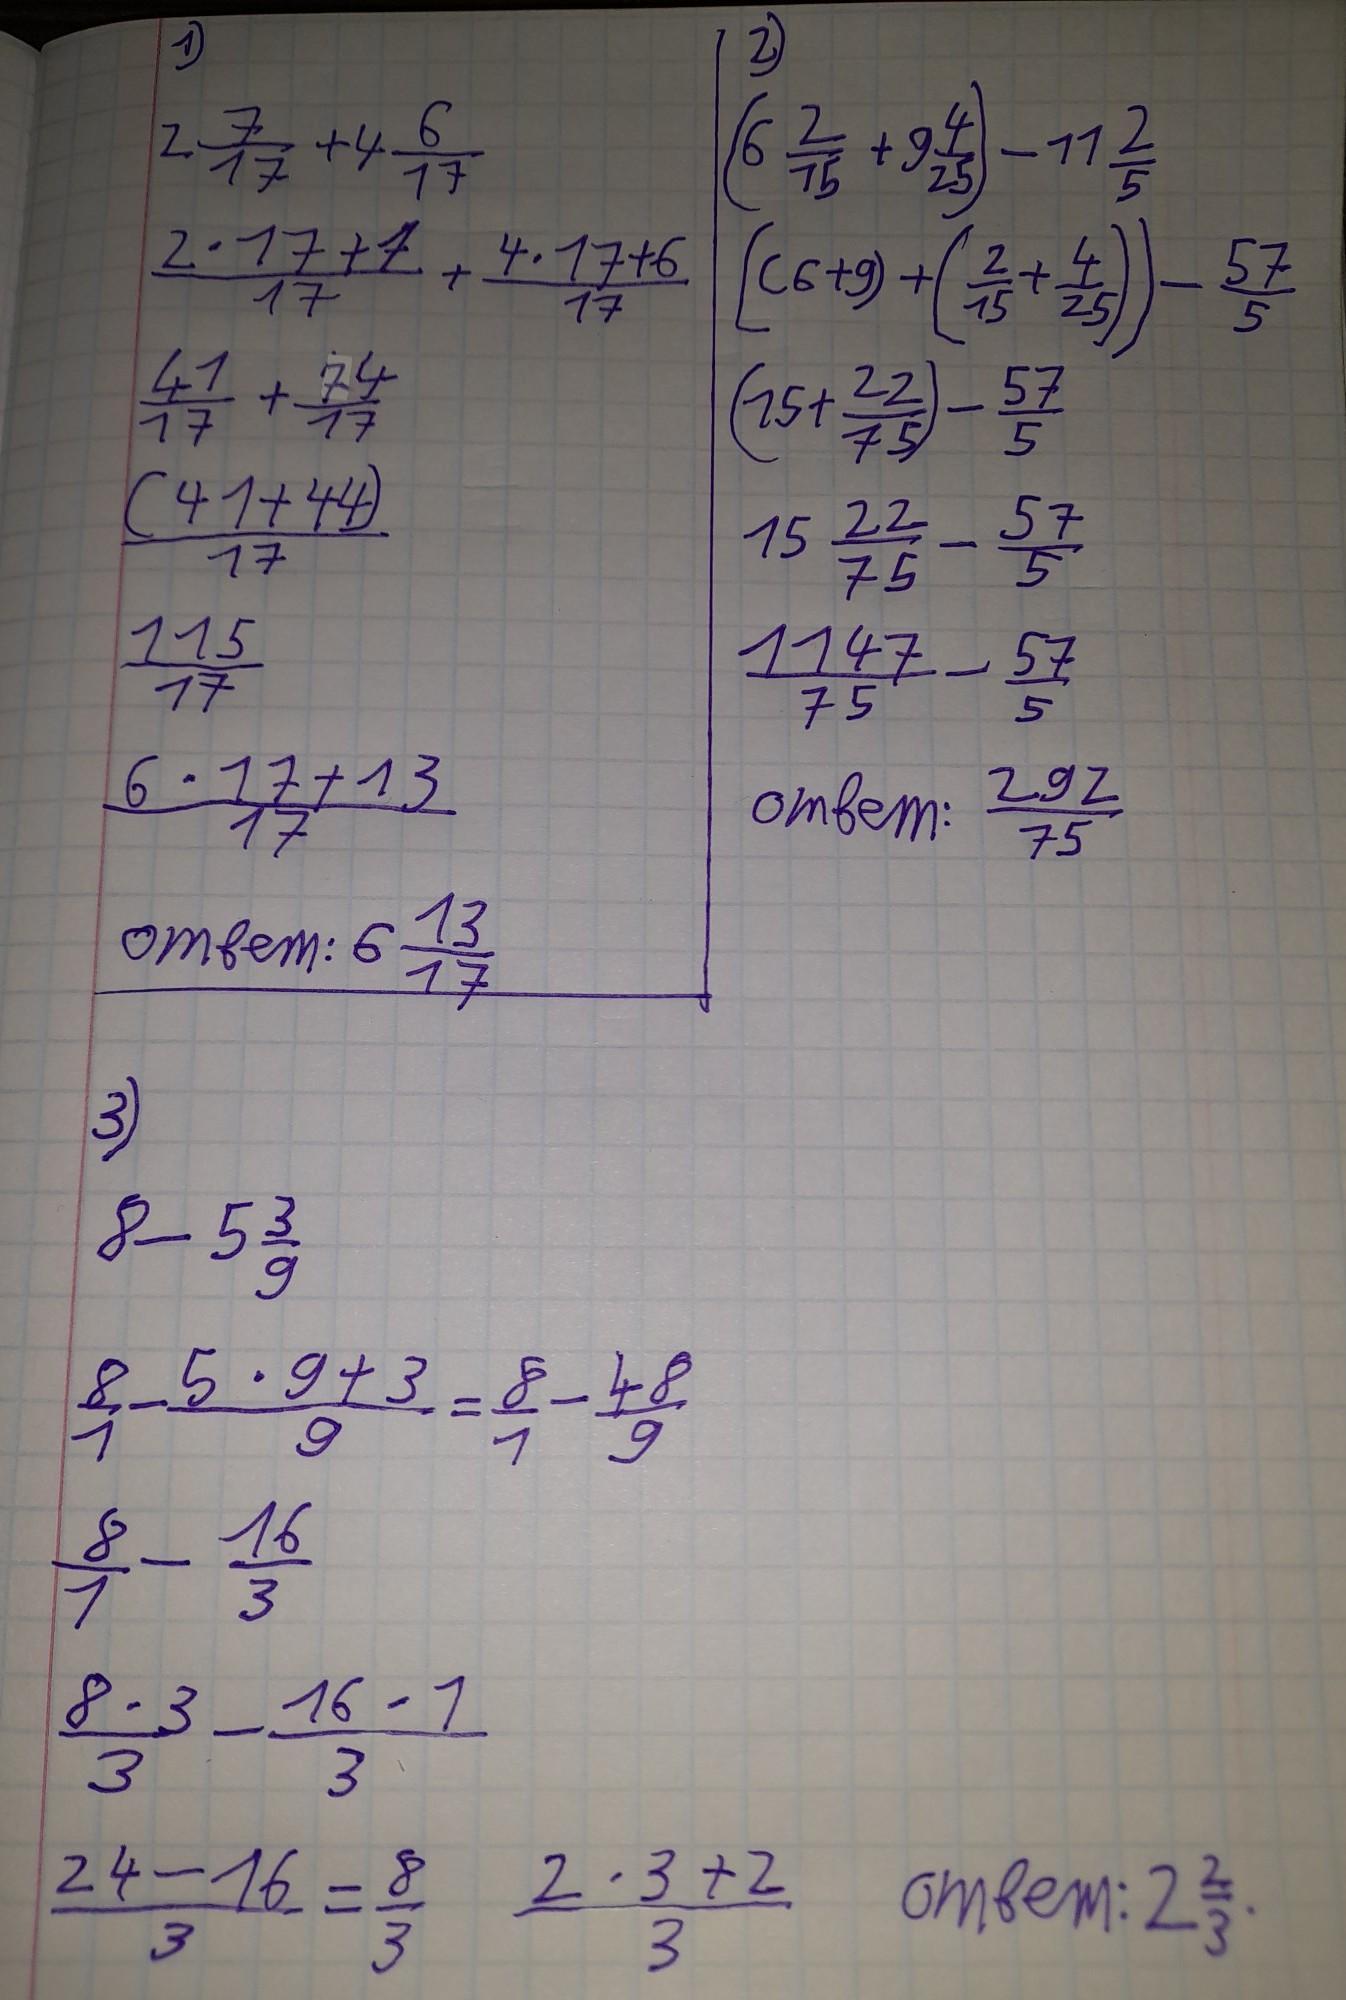 1)
2 7/17 + 4 6/17
(2·17+7)/17 + (4·17+6)/17
41/17 + 74/17
(41+44)/17
115/17
(6·17+13)/17
ответ: 6 13/17
2)
(6 2/15 + 9 4/25) - 11 2/5
((6+9) + (2/15 + 4/25)) - 57/5
(15 + 22/75) - 57/5
15 22/75 - 57/5
1147/75 - 57/5
ответ: 292/75
3)
8 - 5 3/9
8/1 - (5·9+3)/9 = 8/1 - 48/9
8/1 - 16/3
(8·3)/3 - (16·1)/3
(24-16)/3 = 8/3 (2·3+2)/3 ответ: 2 2/3.